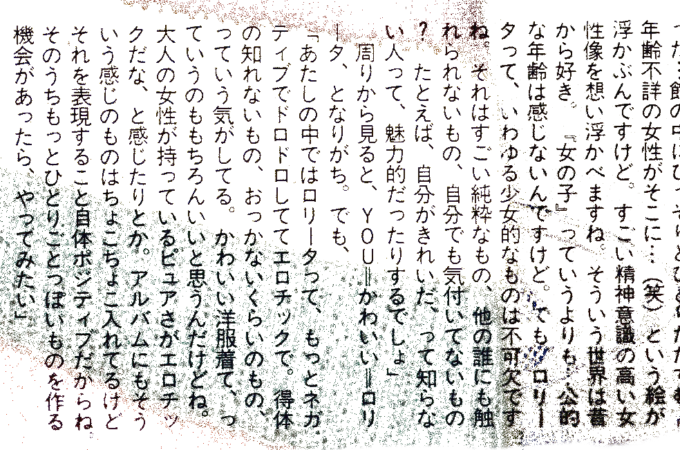 年齢不詳の女性がそこに…（笑）という絵が
浮かぶんですけど。すごい精神意識の高い女
性像を想い浮かべますね。そういう世界は昔
から好き。『女の子』っていうよりも…公的
な年齢は感じないんですけど。でも、ロリー
タって、いわゆる少女的なものは不可欠です
ね。それはすごい純粋なもの、他の誰にも触
れられないもの、自分でも気付いてないもの
？　たとえば、自分がきれいだ、って知らな
い人って、魅力的だったりするでしょ」
周りから見ると、ＹＯＵ＝かわいい＝ロリ
ータ、となりがち。でも、
「あたしの中ではロリータって、もっとネガ
ティブでドロドロしててエロチックで。得体
の知れないもの、おっかないくらいのもの、
っていう気がしてる。かわいい洋服着て、っ
ていうのももちろんいいと思うんだけどね。
大人の女性が持っているピュアさがエロチッ
クだな、と感じたりとか。アルバムにもそう
いう感じのものはちょこちょこ入れてるけど
それを表現すること自体ポジティブだからね
そのうちもっとひとりごとっぽいものを作る
機会があったら、やってみたい」